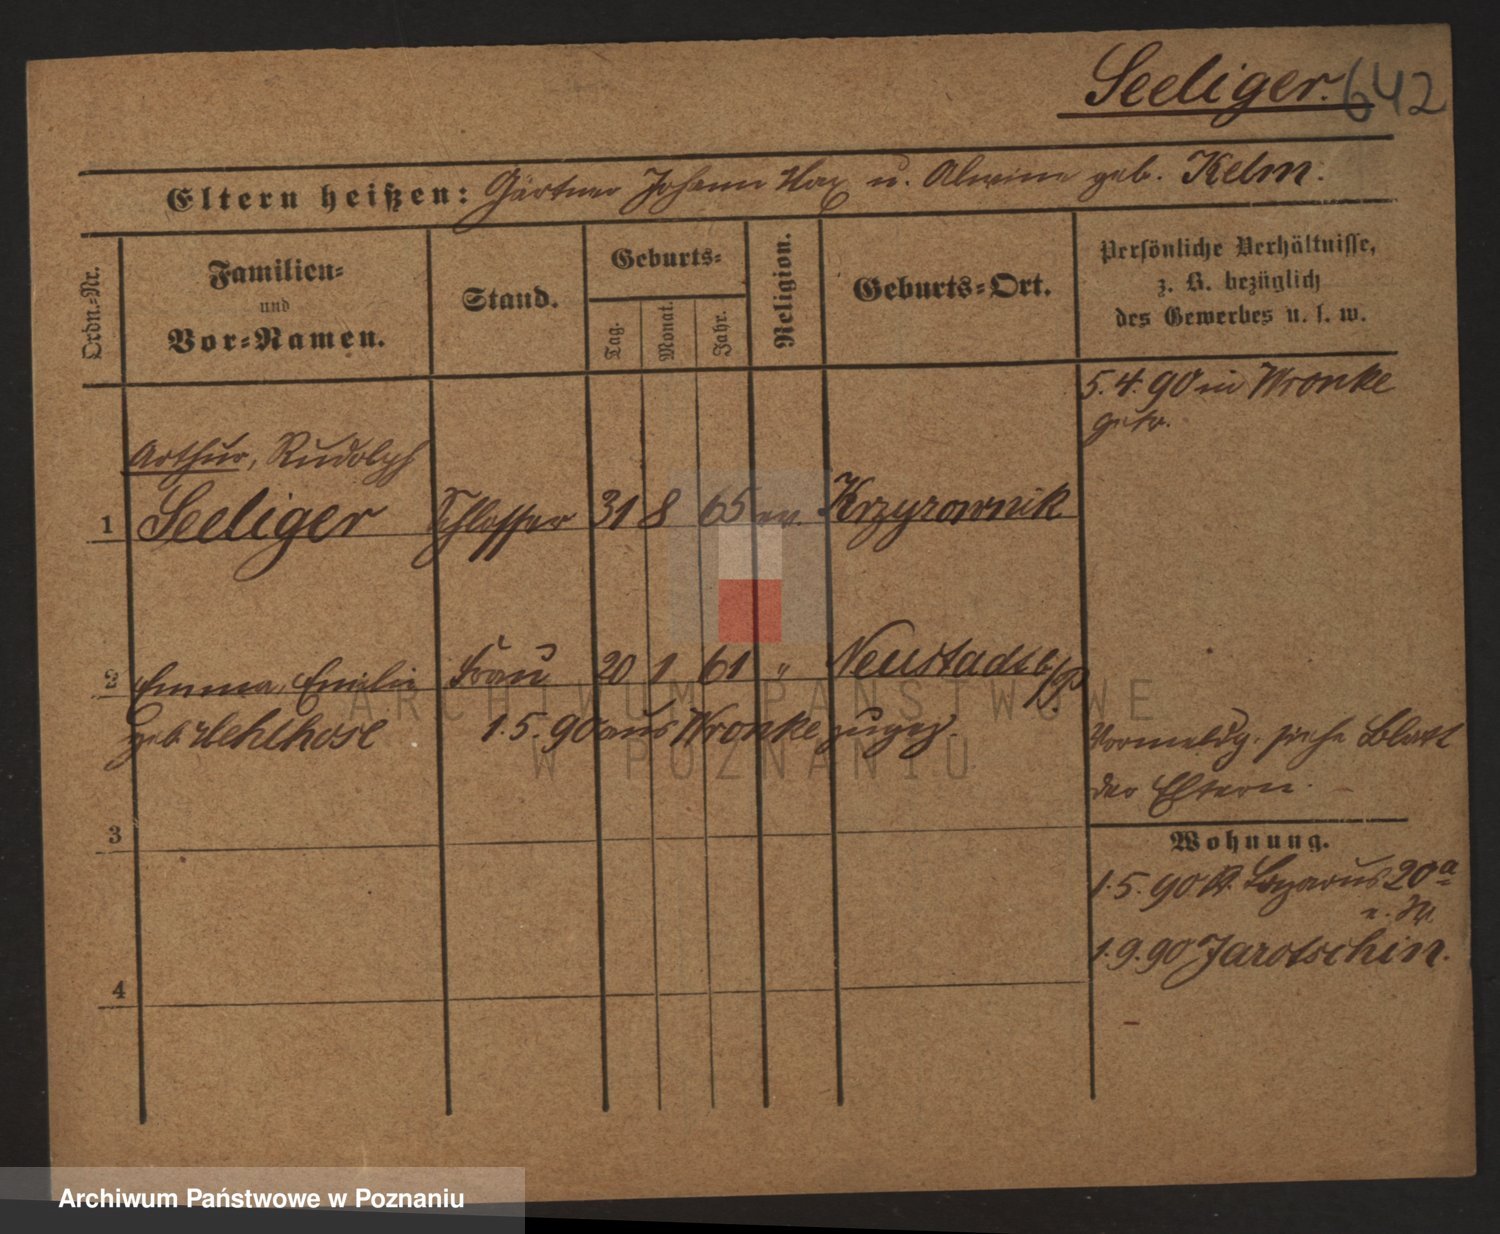 Seeliger. 642
Eltern heißen: Gärtner Johann Max u. Alwine geb. Kelm.
Ordn.-Nr.
Familien-
und
Vor-Namen.
Stand.
Geburts-
Tag.
Monat.
Jahr.
Religion.
Geburts-Ort.
Persönliche Verhältnisse,
z. B. bezüglich
des Gewerbes u. s. w.
5. 4. 90 in Wronke
getr.
Arthur, Rudolph
1 Seeliger Schlosser 31 8 65 ev. Krzyzownik
2 Emma, Emilie Frau 20 1 61 " Neustadt b/P.
geb. 1.5.90 aus Wronke zugez.
Vormeldg. siehe Blatt
der Eltern.
3
Wohnung.
1.5.90 St. Lazarus 20a
1.9.90 Jarotschin.
4
ARCHIWUM PAŃSTWOWE
W POZNANIU
Archiwum Państwowe w Poznaniu